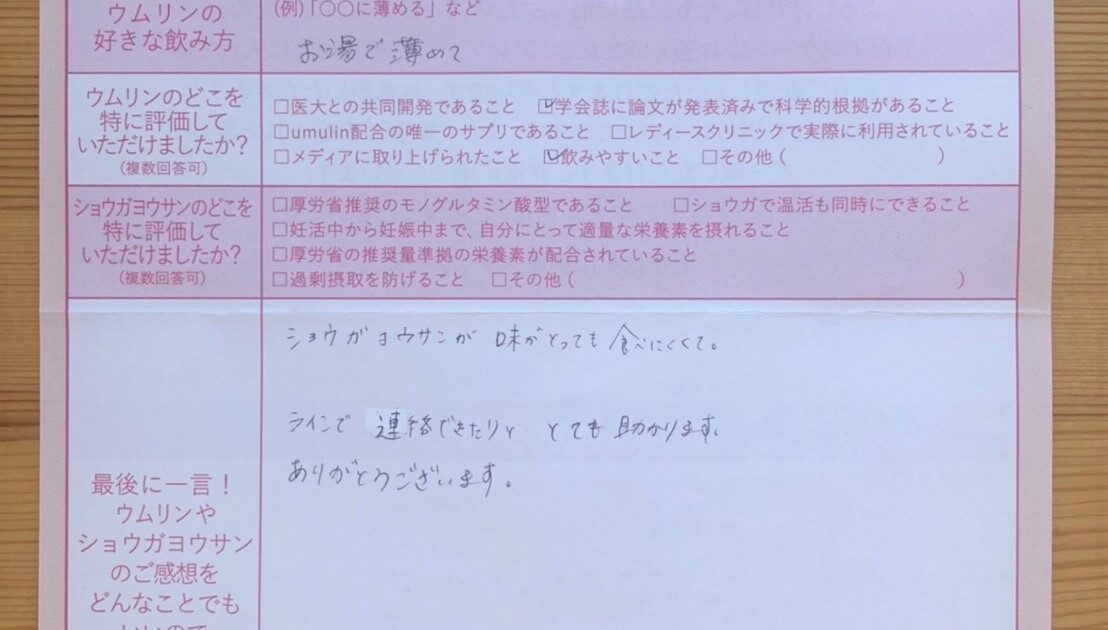 ウムリンの
好きな飲み方
(例)「〇〇に薄める」など
お湯で薄めて
ウムリンのどこを
特に評価して
いただけましたか?
(複数回答可)
□医大との共同開発であること ☑学会誌に論文が発表済みで科学的根拠があること
□umulin配合の唯一のサプリであること □レディースクリニックで実際に利用されていること
□メディアに取り上げられたこと ☑飲みやすいこと □その他( )
ショウガヨウサンのどこを
特に評価して
いただけましたか?
(複数回答可)
□厚労省推奨のモノグルタミン酸型であること □ショウガで温活も同時にできること
□妊活中から妊娠中まで、自分にとって適量な栄養素を摂れること
□厚労省の推奨量準拠の栄養素が配合されていること
□過剰摂取を防げること □その他( )
ショウガヨウサンが 味がとっても 食べにくくて。
ラインで 連絡できたりと とても 助かります。
ありがとうございます。
最後に一言!
ウムリンや
ショウガヨウサン
のご感想を
どんなことでも